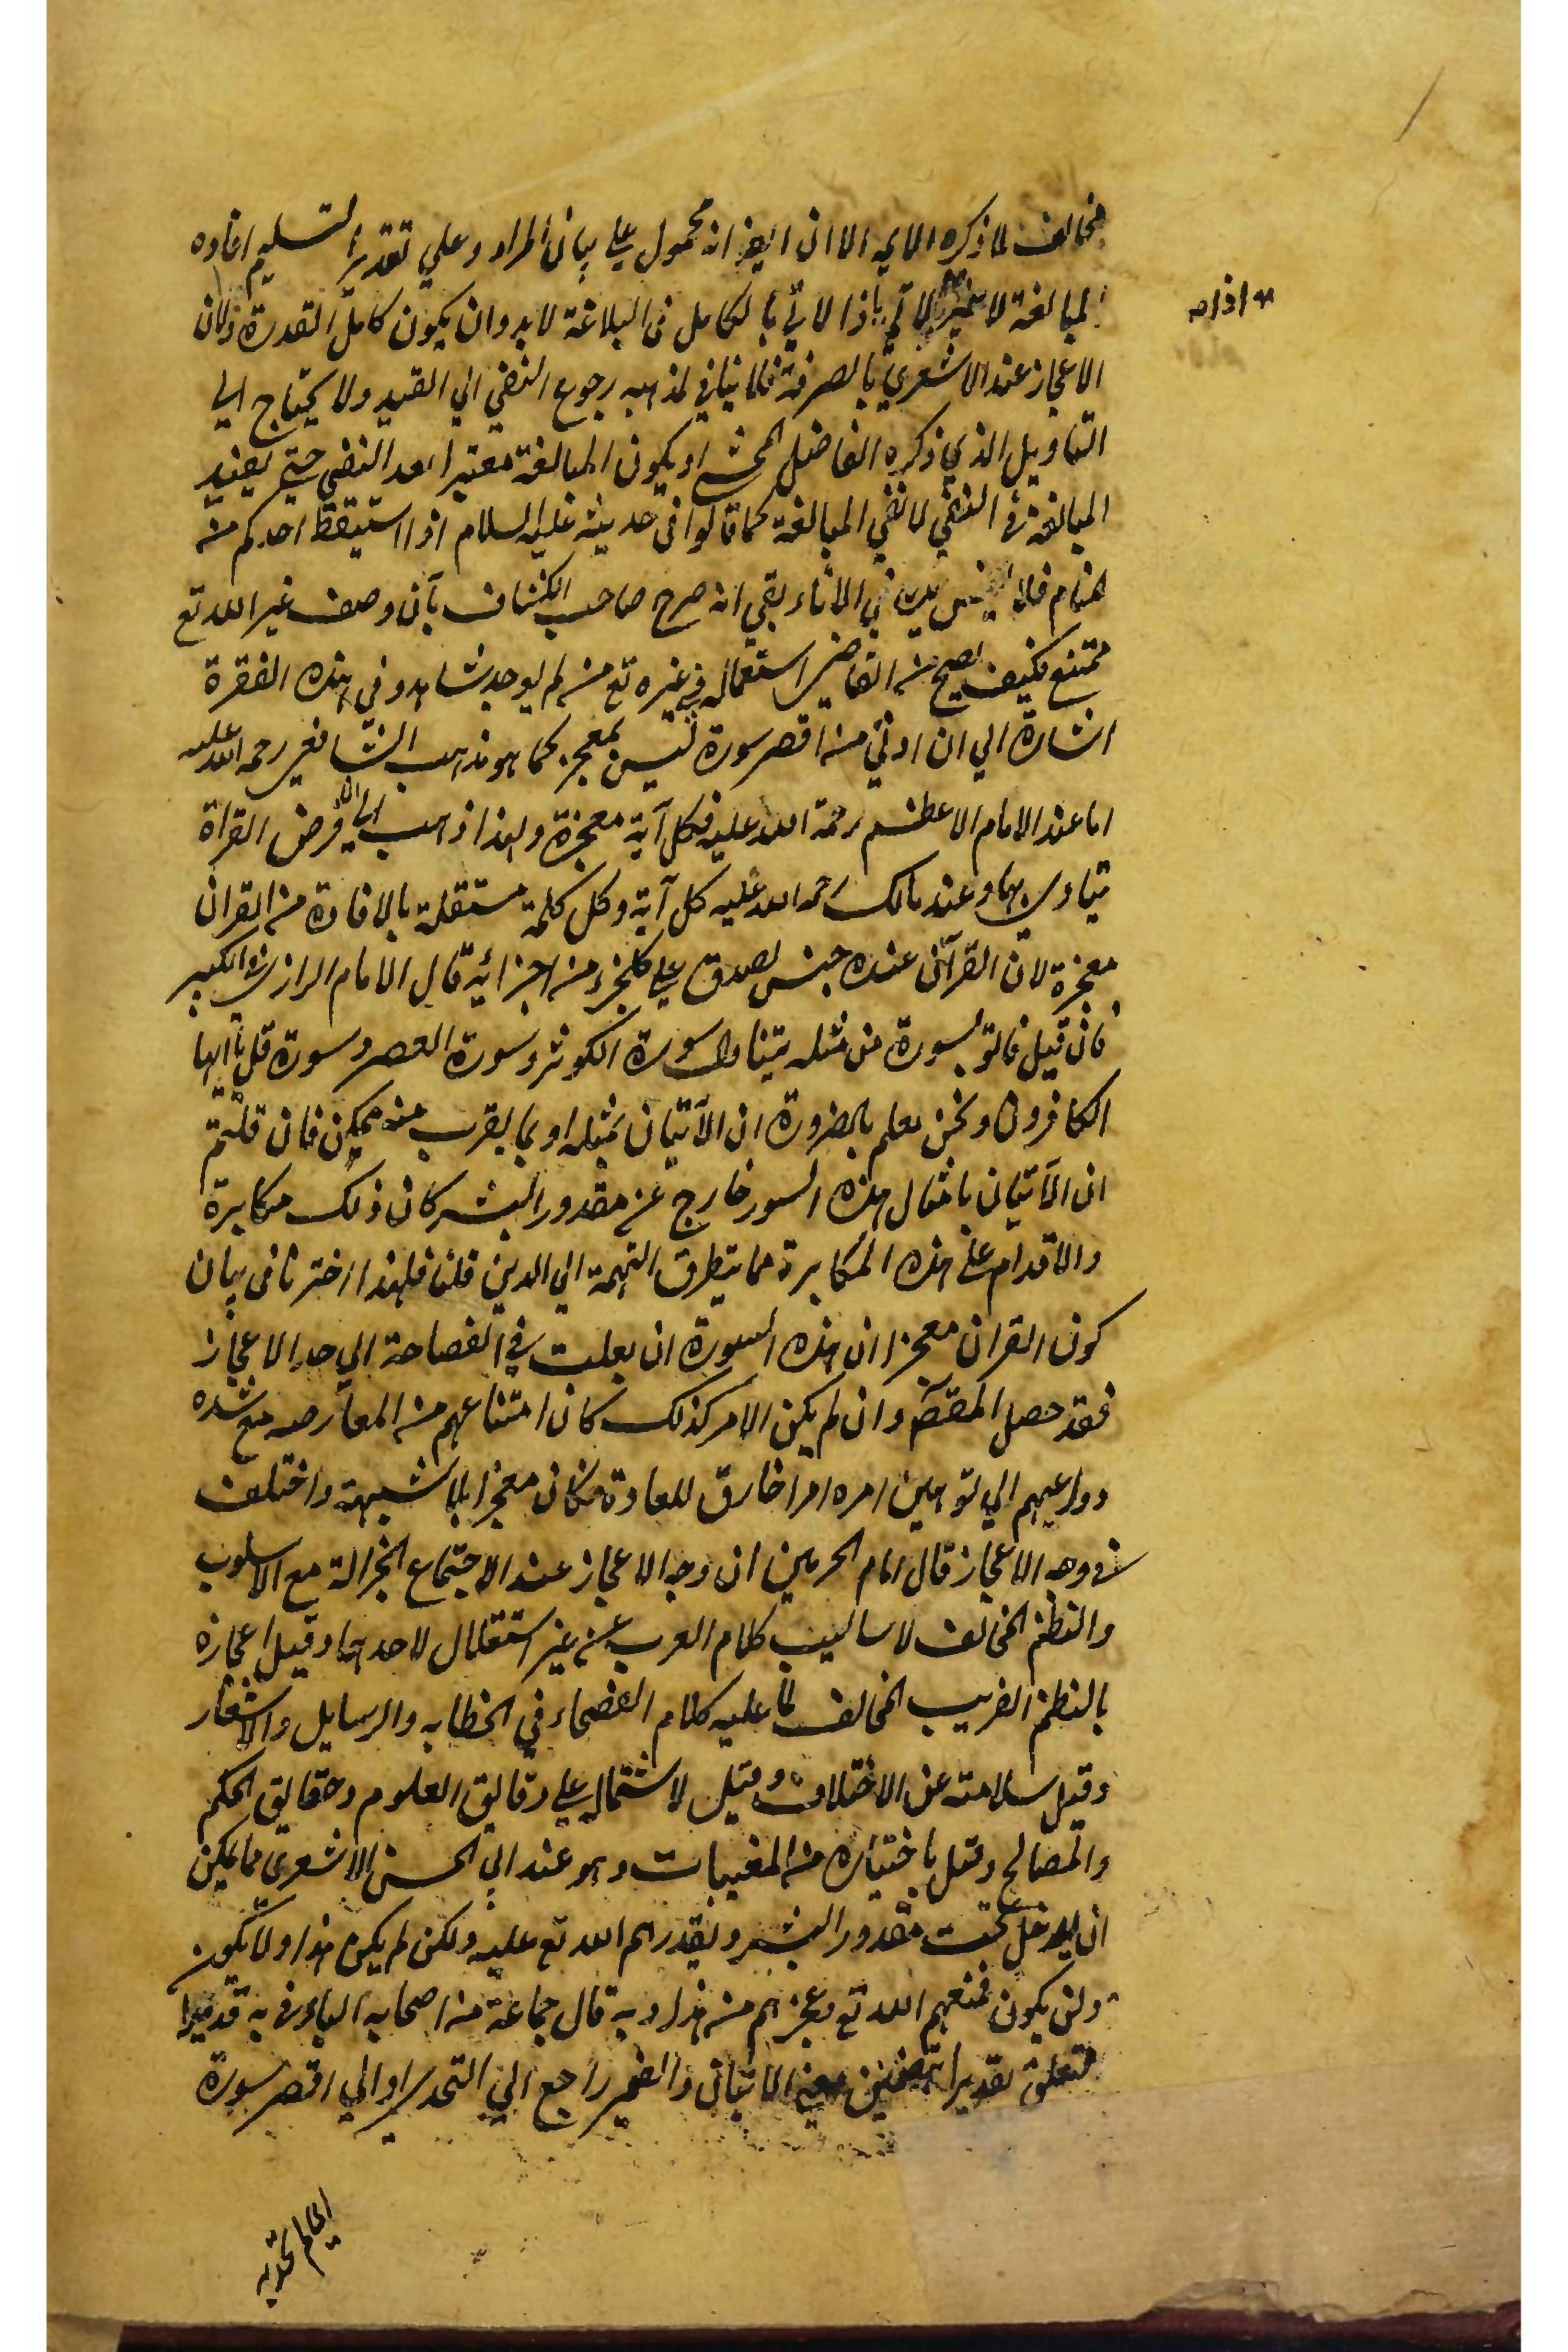 مخالف لما ذكره الا يه الا ان ايغر انه محمول على بيان المراد وعلي تقدير التسليم افاده
المبالغة لا تميز الا لم اذا لا تي بالكامل فى البلاغة لا بد وان يكون كامل القدرة ولان
الاعجاز عند الاشعري بالصرفة فلا ينافي لمذهبه رجوع النفي الي القيد ولا يحتاج الى
التاويل الذي ذكره الفاضل المحشى او يكون المبالغة معتبرا بعد النفي حتى يفيد
المبالغة فى النفي لا نفي المبالغة كما قالوا فى حديثه عليه السلام اذا استيقظ احدكم من
المنام فلا يغمس يده في الاناء بقي انه صرح صاحب الكشاف بأن وصف غير الله تع
ممتنع فكيف يصح من القاضي استعماله في غيره تع من لم يوجد شاهد وفي هذه الفقرة
اشارة الي ان ادنى من اقصر سورة ليس بمعجز كما هو مذهب الشافعي رحمه الله عليه
اما عند الامام الاعظم رحمة الله عليه فكل آية معجزة ولهذا ذهب الى ان فرض القراة
يتادى بها وعند مالك رحمه الله عليه كل آية وكل كلمة مستقلة بالافادة من القران
معجزة لان القرآن عنده جنس يصدق على كلجزء من اجزائه قال الامام الرازي فى الكبير
فان قيل فاتو بسورة من مثله يتناول سورة الكوثر وسورة العصر وسورة قل يا ايها
الكافرون ونحن نعلم بالضرورة ان الآتيان بمثله او بما يقرب منه ممكن فان قلتم
ان الآتيان بامثال هذه السور خارج عن مقدور البشر كان ذلك مكابرة
والاقدام على هذه المكابرة مما يتطرق التهمة الي الدين قلنا فلهذا اختر نا فى بيان
كون القران معجزا ان هذه السورة ان بلغت في الفصاحة الي حد الاعجاز
فقد حصل المقصد وان لم يكن الامر كذلك كان امتناعهم من المعارضه مع شده
دواعيهم الي توهين امره امرا خارق للعادة فكان معجزا بلا شبهة واختلف
فى وجه الاعجاز قال امام الحرمين ان وجه الاعجاز عند الاجتماع الجزالة مع الاسلوب
والنظم المخالف لاساليب كلام العرب من غير استقلال لاحدهما وقيل اعجازه
بالنظم الغريب المخالف لما عليه كلام الفصحاء في الخطابه والرسايل والاشعار
وقيل سلامته عن الاختلاف وقيل لاشتماله على دقايق العلوم وحقايق الحكم
والمصالح وقيل باخباره من المغيبات وهو عند ابي الحسن الاشعرى مما يمكن
ان يدخل تحت مقدور البشر ويقدرهم الله تع عليه ولكن لم يكن هذا ولا يكون
ولن يكون فمنعهم الله تع وعجزهم من هذا وبه قال جماعة من اصحابه الباء فى به قديرا
متعلق بقديرا بتضمين معنى الاتيان والضمير راجع الي التحدى او الي اقصر سورة